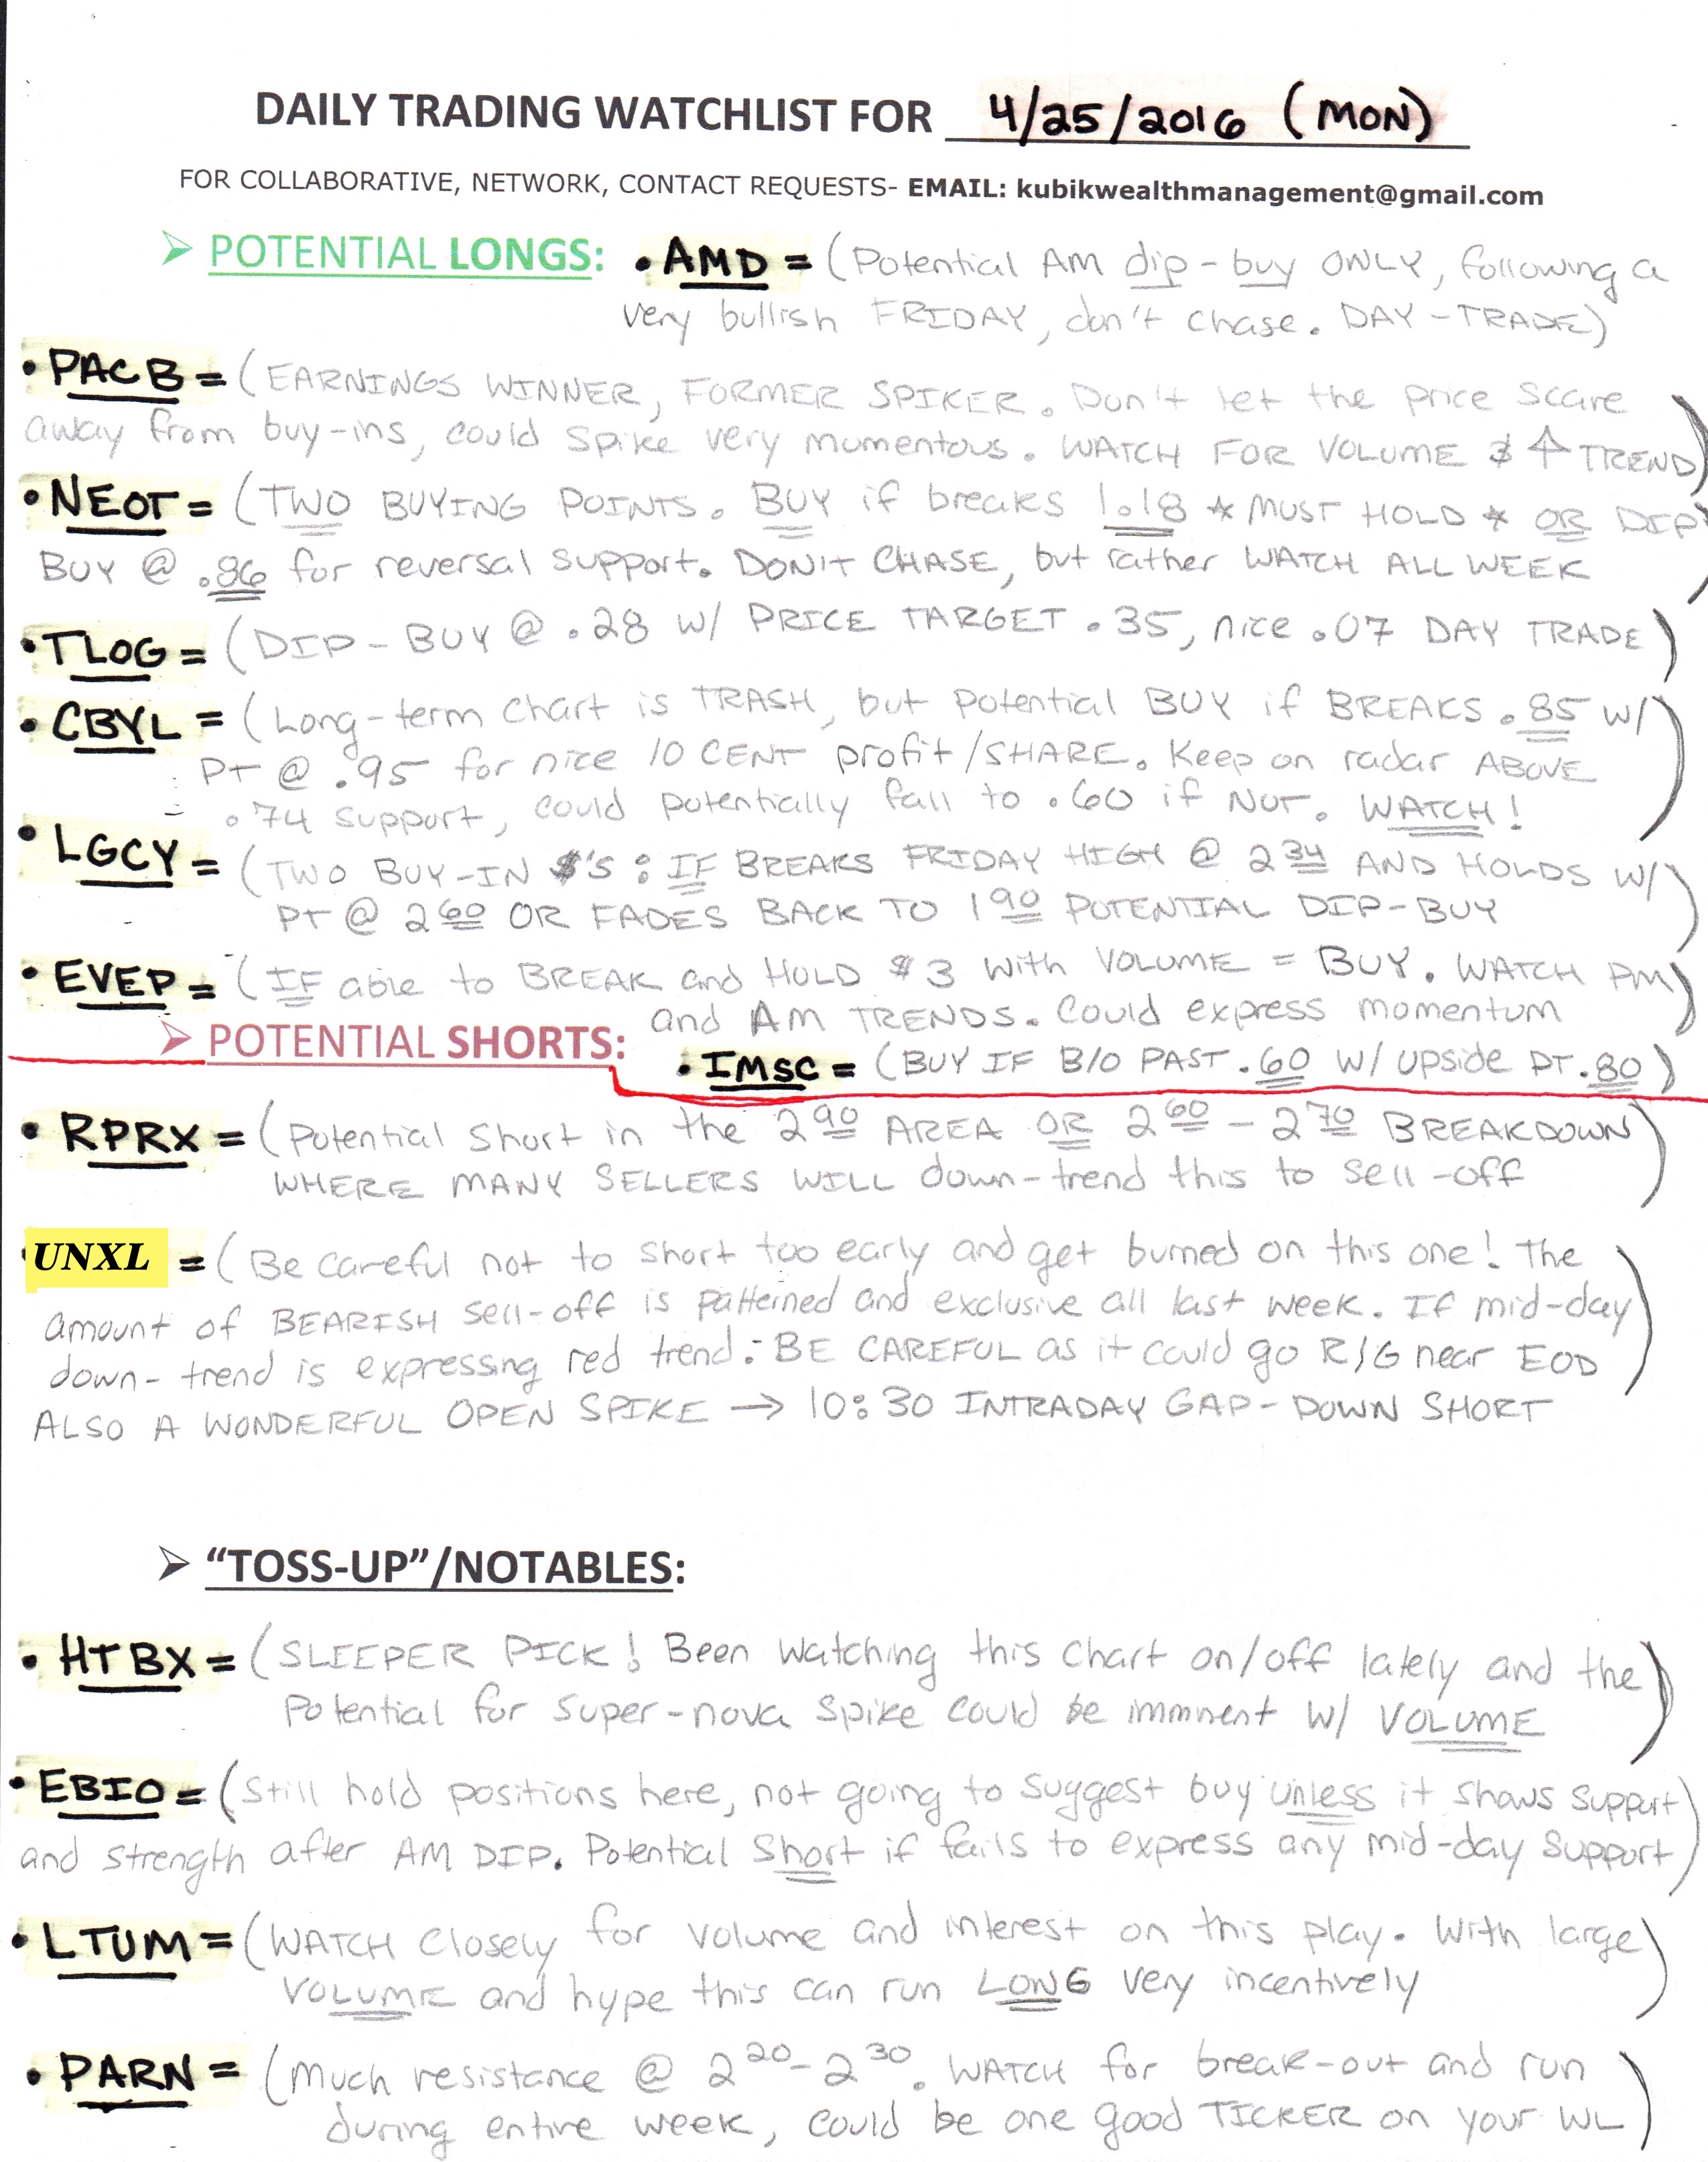 DAILY TRADING WATCHLIST FOR 4/25/2016 (MON)
FOR COLLABORATIVE, NETWORK, CONTACT REQUESTS- EMAIL: kubikwealthmanagement@gmail.com
➢ POTENTIAL LONGS: • AMD = (Potential AM dip-buy ONLY, following a
very bullish FRIDAY, don't chase. DAY-TRADE)
• PACB = (EARNINGS WINNER, FORMER SPIKER. Don't let the price scare
away from buy-ins, could spike very momentous. WATCH FOR VOLUME & ↑ TREND)
• NEOT = (TWO BUYING POINTS. BUY if breaks 1.18 * MUST HOLD * OR DIP
BUY @ .86 for reversal support. DON'T CHASE, but rather WATCH ALL WEEK)
• TLOG = (DIP-BUY @ .28 W/ PRICE TARGET .35, nice .07 DAY TRADE)
• CBYL = (Long-term chart is TRASH, but potential BUY if BREAKS .85 W/
PT @ .95 for nice 10 CENT profit/SHARE. Keep on radar ABOVE
.74 support, could potentially fall to .60 if NOT. WATCH!)
• LGCY = (TWO BUY-IN $'S: IF BREAKS FRIDAY HIGH @ 2 34 AND HOLDS W/
PT @ 2 60 OR FADES BACK TO 1 90 POTENTIAL DIP-BUY)
• EVEP = (IF able to BREAK and HOLD $3 with VOLUME = BUY. WATCH PM
and AM TRENDS. Could express momentum)
➢ POTENTIAL SHORTS:
• IMSC = (BUY IF B/O PAST .60 W/ upside PT .80)
• RPRX = (Potential short in the 2 90 AREA OR 2 60 - 2 70 BREAKDOWN
WHERE MANY SELLERS WILL down-trend this to sell-off)
UNXL = (Be careful not to short too early and get burned on this one! The
amount of BEARISH sell-off is patterned and exclusive all last week. If mid-day
down-trend is expressing red trend: BE CAREFUL as it could go R/G near EOD)
ALSO A WONDERFUL OPEN SPIKE → 10:30 INTRADAY GAP-DOWN SHORT
➢ “TOSS-UP”/NOTABLES:
• HTBX = (SLEEPER PICK! Been watching this chart on/off lately and the
Potential for super-nova spike could be imminent W/ VOLUME)
• EBIO = (Still hold positions here, not going to suggest buy unless it shows support
and strength after AM DIP. Potential Short if fails to express any mid-day support)
• LTUM = (WATCH closely for volume and interest on this play. With large
VOLUME and hype this can run LONG very incentively)
• PARN = (Much resistance @ 2 20 - 2 30. WATCH for break-out and run
during entire week, could be one good TICKER on your WL)